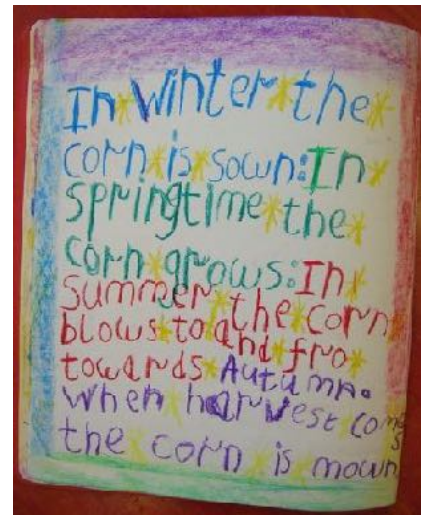 In winter the
corn is sown: In
springtime the
corn grows: In
summer the corn
blows to and fro
towards Autumn.
When harvest comes
the corn is mown